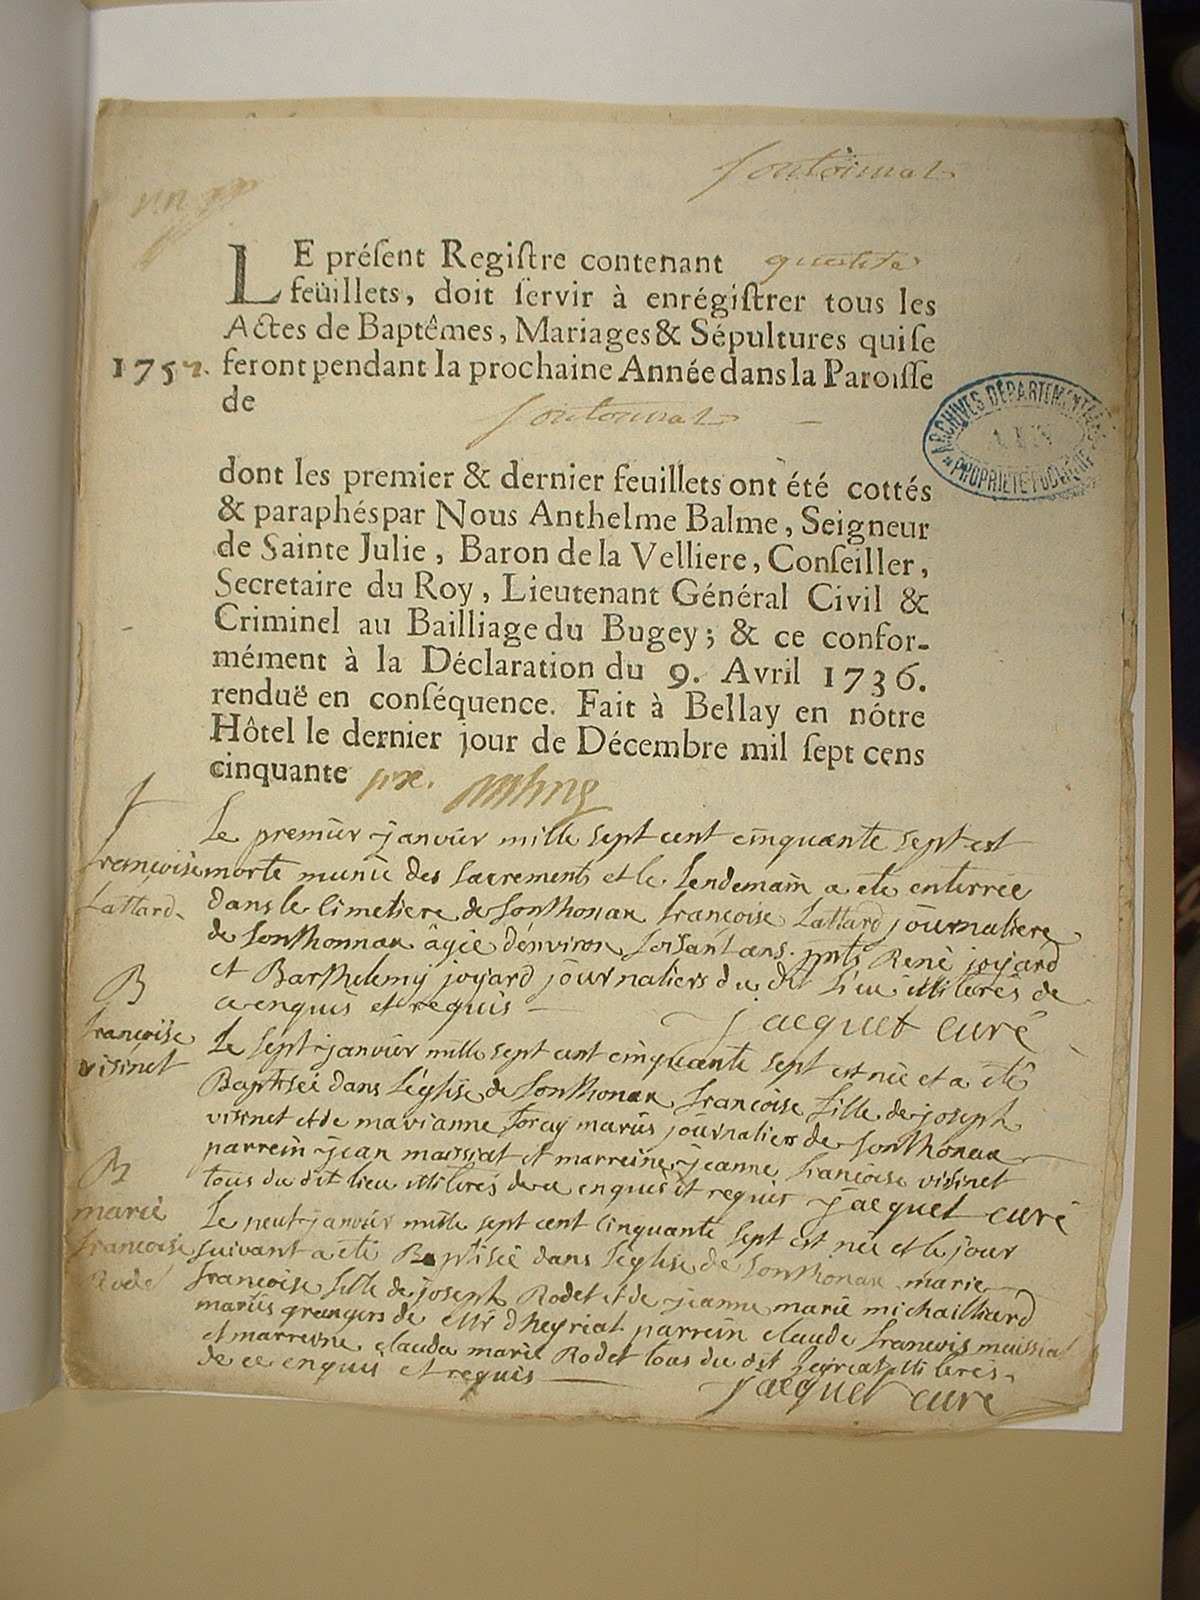 Sontonnat
LE présent Registre contenant quatre
feüillets, doit servir à enrégistrer tous les
Actes de Baptêmes, Mariages & Sépultures qui se
1757. feront pendant la prochaine Année dans la Paroisse
de Sontonnat
ARCHIVES DÉPARTEMENTALES
AIN
PROPRIÉTÉ PUBLIQUE
dont les premier & dernier feuillets ont été cottés
& paraphés par Nous Anthelme Balme, Seigneur
de Sainte Julie, Baron de la Velliere, Conseiller,
Secretaire du Roy, Lieutenant Général Civil &
Criminel au Bailliage du Bugey; & ce confor-
mément à la Déclaration du 9. Avril 1736.
renduë en conséquence. Fait à Bellay en nôtre
Hôtel le dernier jour de Décembre mil sept cens
cinquante six.
Le premier janvier mille sept cent cinquante sept est
françoise morte munie des sacrements et le lendemain a ete enterrée
Lattard dans le Cimetiere de Sonthonax françoise Lattard journaliere
de Sonthonnax âgée d'environ soisant ans. pnts René joyard
et Barthelemy joyard journaliers du dit lieu illiterés de
ce enquis et requis jacquet curé
B
françoise
visinet
Le sept janvier mille sept cent cinquante sept est née et a été
Baptisée dans l'église de Sonthonax françoise fille de joseph
visinet et de marianne foray mariés journaliers de Sonthonax
parrein jean massiat et marreine jeanne françoise visinet
tous du dit lieu illiterés de ce enquis et requis jacquet curé
B
marie
francoise
Rodet
Le neuf janvier mille sept cent cinquante sept est née et le jour
suivant a été Baptisée dans l'église de Sonthonax marie
françoise fille de joseph Rodet et de jeanne marie michailliard
mariés grangers de Mr d'heyriat parrein claude francois massiat
et marreine clauda marie Rodet tous du dit heyriat illiterés
de ce enquis et requis jacquet curé